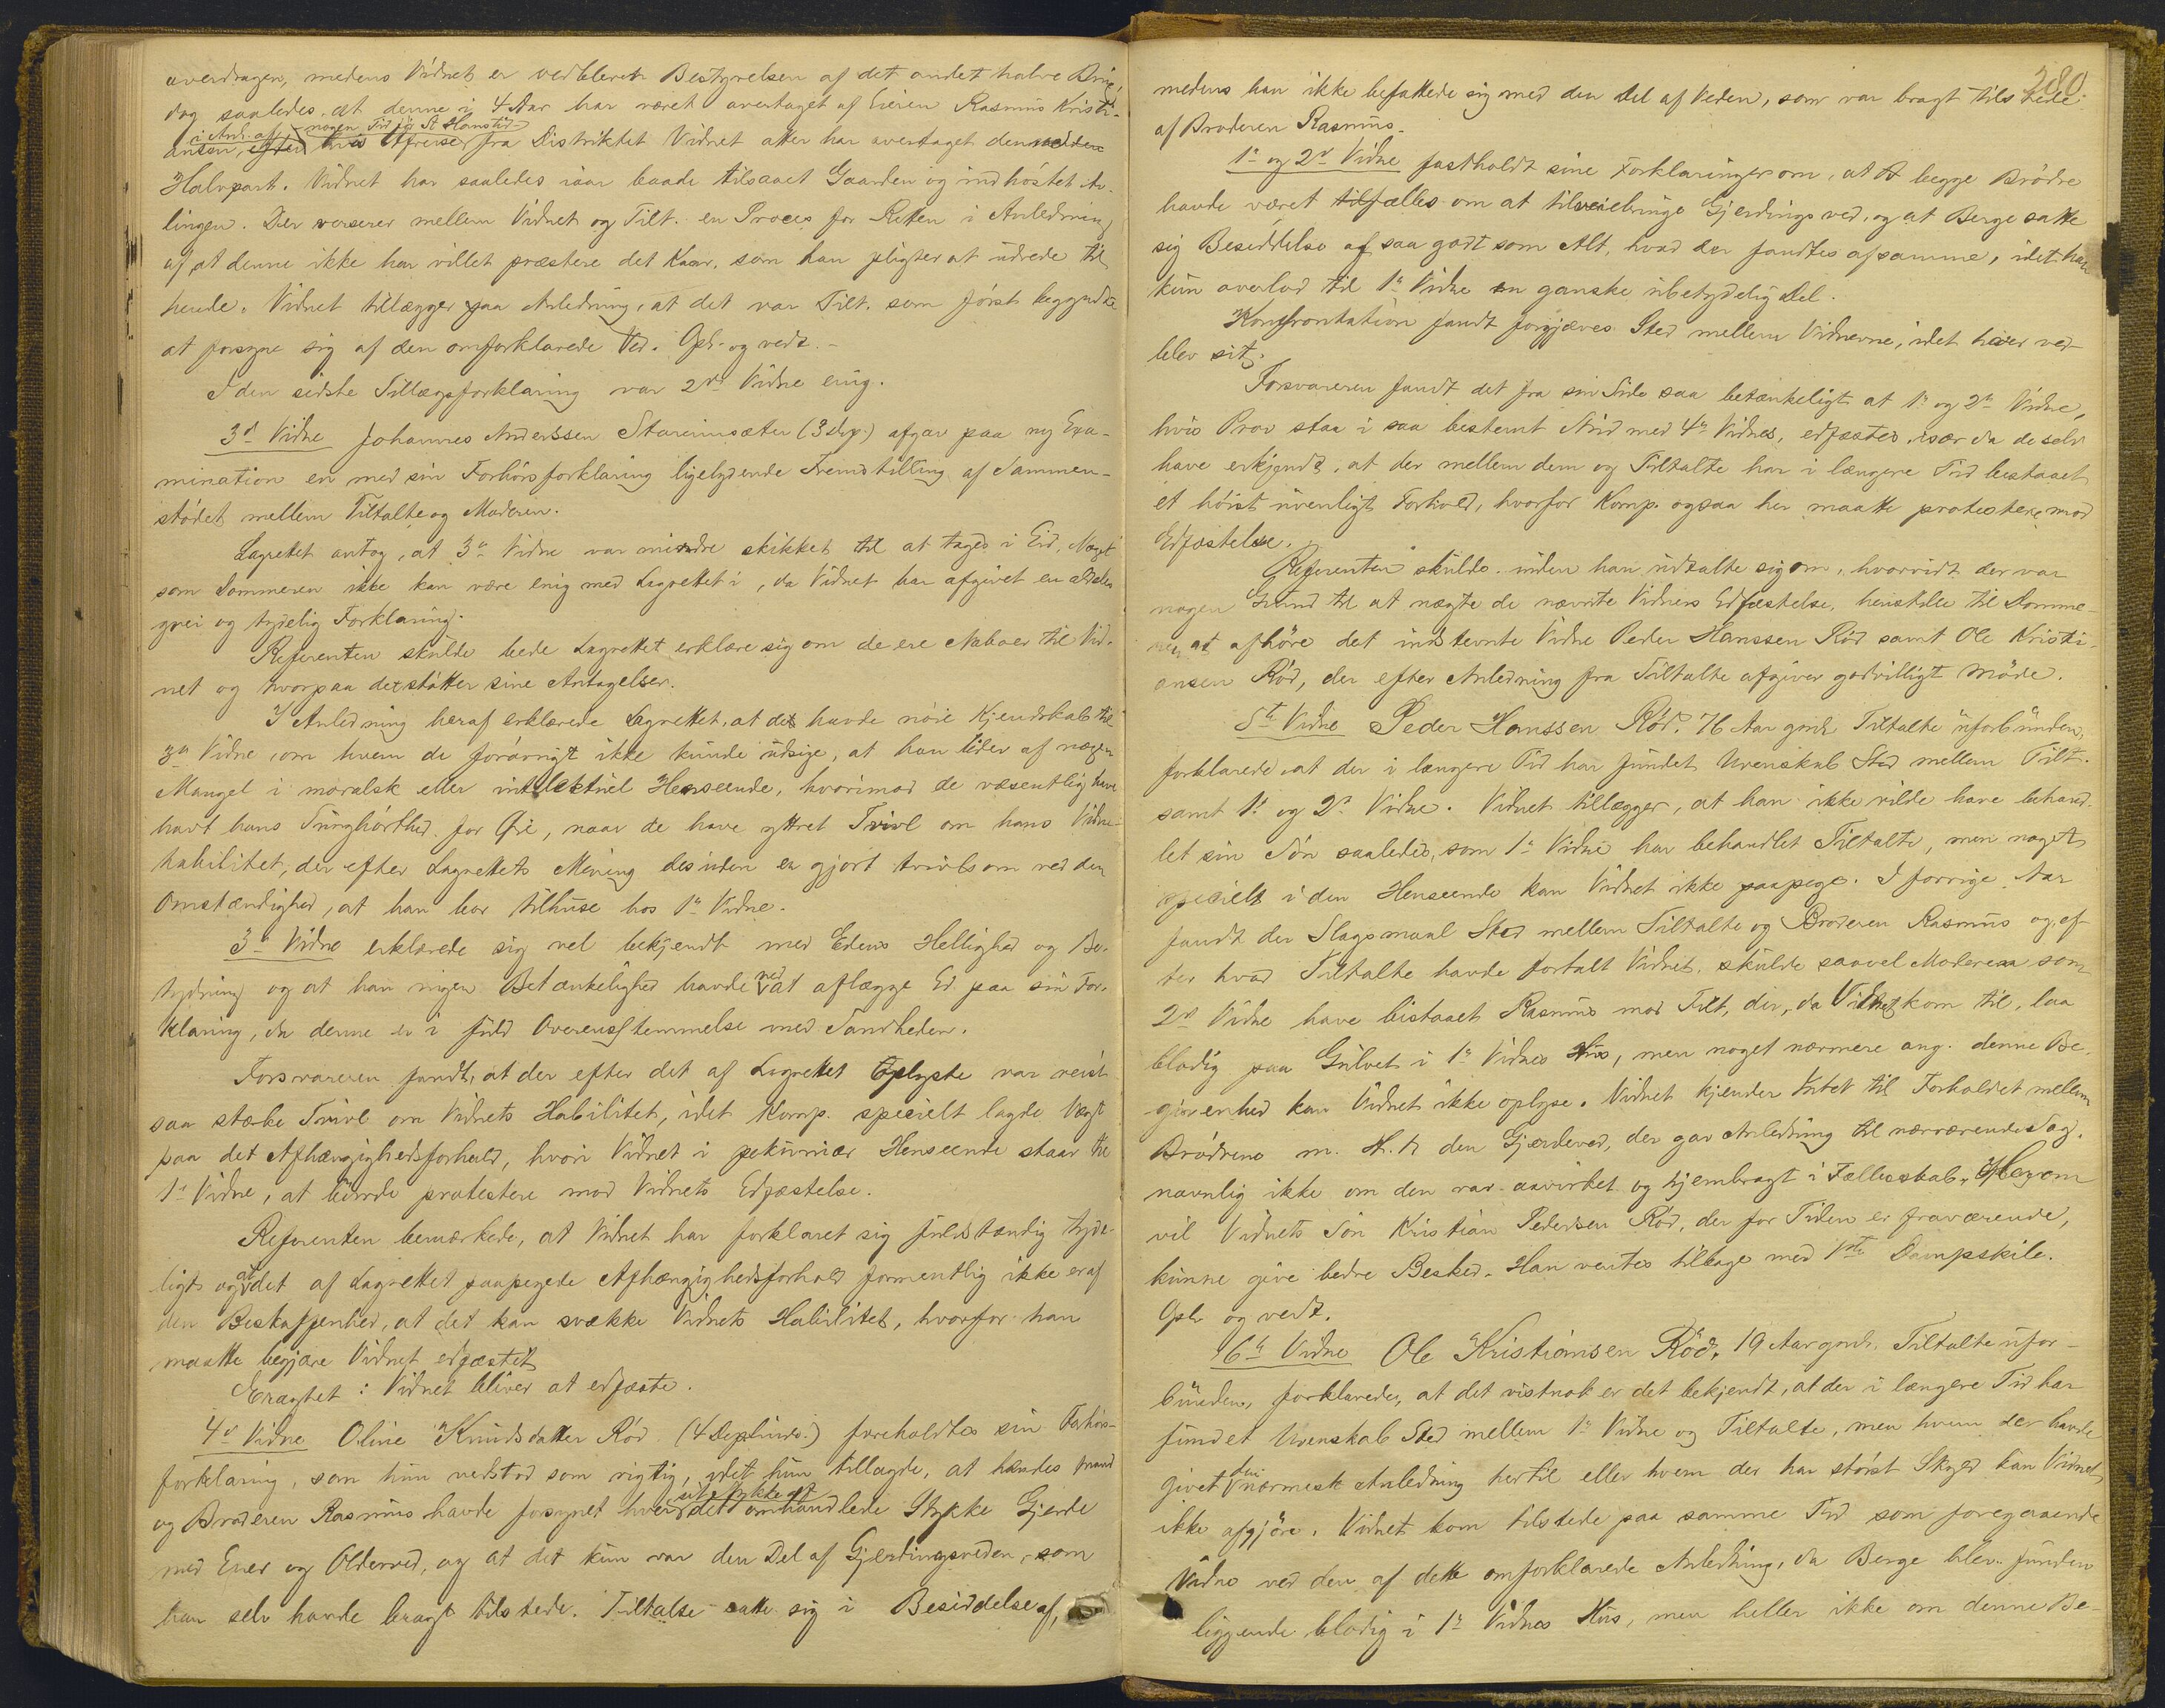 overdragen, medens Vidnet er vedblevet Bestyrelsen af det andet halve Brug,
dog saaledes at denne i 4 Aar har været overtaget af Eieren Rasmus Kristi-
i Anl. af nogen Tid før St Hanstid
ansen, efter hvis Afreise fra Distriktet Vidnet atter har overtaget den
Halvpart. Vidnet har saaledes iaar baade tilsaaet Gaarden og indhøstet Av-
lingen. Der verserer mellem Vidnet og Tilt. en Proces for Retten i Anledning
af at denne ikke har villet præstere det Kaar, som han pligter at udrede til
hende. Vidnet tillægger paa Anledning, at det var Tilt. som først begyndte
at forsyne sig af den omforklarede Ved. Opl. og vedt. -
I den sidste Tillægsforklaring var 2det Vidne enig.
3die Vidne Johannes Anderssen Stareimsæter (3 dep.) afgav paa ny Exa-
mination en med sin Forhørsforklaring ligelydende Fremstilling af Sammen-
stødet mellem Tiltalte og Moderen.
Lagrettet antog, at 3die Vidne var mindre skikket til at tages i Eid, Noget
som Dommeren ikke kan være enig med Lagrettet i, da Vidnet har afgivet en aldeles
grei og tydelig Forklaring.
Referenten skulde bede Lagrettet erklære sig om de ere Naboer til Vid-
net og hvorpaa det støtter sine Antagelser.
I Anledning heraf erklærede Lagrettet, at det havde nøie Kjendskab til
3die Vidne, om hvem de forøvrigt ikke kunde udsige, at han lider af nogen
Mangel i moralsk eller intellektuel Henseende, hvorimod de væsentlig have
havt hans Tunghørthed for Øie, naar de have yttret Tvivl om hans Vidne-
habilitet, der efter Lagrettets Mening desuden er gjort tvivlsom ved den
Omstændighed, at han bor tilhuse hos 1ste Vidne.
3die Vidne erklærede sig vel bekjendt med Edens Hellighed og Be-
tydning og at han ingen Betænkelighed havde ved at aflægge Ed paa sin For-
klaring, da denne er i fuld Overensstemmelse med Sandheden.
Forsvareren fandt, at der efter det af Lagrettet Oplyste var reist
saa stærke Tvivl om Vidnets Habilitet, idet Komp. specielt lagde Vægt
paa det Afhængighedsforhold, hvori Vidnet i pekuniær Henseende staar til
1ste Vidne, at burde protestere mod Vidnets Edfæstelse.
Referenten bemærkede, at Vidnet har forklaret sig fuldstændig tyde-
ligt og at det af Lagrettet paapegede Afhængighedsforhold formentlig ikke er af
den Beskaffenhed, at det kan svække Vidnets Habilitet, hvorfor han
maatte begjære Vidnet edfæstet.
Eragtet: Vidnet bliver at edfæste.
4de Vidne Oline Knudsdatter Rød (4 Dep.) foreholdtes sin Forhørs-
forklaring, som hun vedstod som rigtig, idet hun tillagde, at hendes Mand
og Broderen Rasmus havde forsynet hver sit Stykke af det omhandlede Stykke Gjerde
med Ener og Olderved, og at det kun var den Del af Gjerdingsveden, som
han selv havde bragt tilstede, Tiltalte satte sig i Besiddelse af,
280
medens han ikke befattede sig med den Del af Veden, som var bragt tilstede
af Broderen Rasmus.
1ste og 2det Vidne fastholdt sine Forklaringer om, at begge Brødre
havde været tilfælles om at tilveiebringe Gjerdingsved, og at Berge satte
sig Besiddelse af saa godt som Alt, hvad der fandtes af samme, idet han
kun overlod til 1ste Vidne en ganske ubetydelig Del.
Konfrontation fandt forgjæves Sted mellem Vidnerne, idet hver ved-
blev sit.
Forsvareren fandt det fra sin Side saa betænkeligt at 1ste og 2det Vidne,
hvis Prov staa i saa bestemt Strid med 4de Vidnes, edfæstes, især da de selv
have erkjendt, at der mellem dem og Tiltalte har i længere Tid bestaaet
et høist uvenligt Forhold, hvorfor Komp. ogsaa her maatte protestere mod
Edfæstelse.
Referenten skulde, inden han udtalte sig om, hvorvidt der var
nogen Grund til at nægte de nævnte Vidners Edfæstelse, henstille til Domme-
ren at afhøre det indstevnte Vidne Peder Hanssen Rød samt Ole Kristi-
ansen Rød, der efter Anledning fra Tiltalte afgiver godvilligt Møde.
5te Vidne Peder Hanssen Rød, 76 Aar gml. Tiltalte uforbunden,
forklarede, at der i længere Tid har fundet Uvenskab Sted mellem Tilt.
samt 1ste og 2det Vidne. Vidnet tillægger, at han ikke vilde have behand-
let sin Søn saaledes, som 1ste Vidne har behandlet Tiltalte, men noget
specielt i den Henseende kan Vidnet ikke paapege. I forrige Aar
fandt der Slagsmaal Sted mellem Tiltalte og Broderen Rasmus og ef-
ter hvad Tiltalte havde fortalt Vidnet, skulde saavel Moderen som
2det Vidne have bistaaet Rasmus mod Tilt, der, da Vidnet kom til, laa
blodig paa Gulvet i 1ste Vidnes Hus, men noget nærmere ang. denne Be-
givenhed kan Vidnet ikke oplyse. Vidnet kjender Intet til Forholdet mellem
Brødrene m. H. t. den Gjerdeved, der gav Anledning til nærværende Sag,
navnlig ikke om den var avirket og hjembragt i Fællesskab. Herom
vil Vidnets Søn Kristian Pedersen Rød, der for Tiden er fraværende,
kunne give bedre Besked. Han ventes tilbage med 1ste Dampskib.
Opl. og vedt.
6te Vidne Ole Kristiansen Rød, 19 Aar gml. Tiltalte ufor-
bunden, forklarede, at det vistnok er det bekjendt, at der i længere Tid har
fundet Uvenskab Sted mellem 1ste Vidne og Tiltalte, men hvem der havde
givet den nærmeste Anledning hertil eller hvem der har størst Skyld kan Vidnet
ikke afgjøre. Vidnet kom tilstede paa samme Tid som foregaaende
Vidne ved den af dette omforklarede Anledning, da Berge blev funden
liggende blodig i 1ste Vidnes Hus, men heller ikke om denne Be-